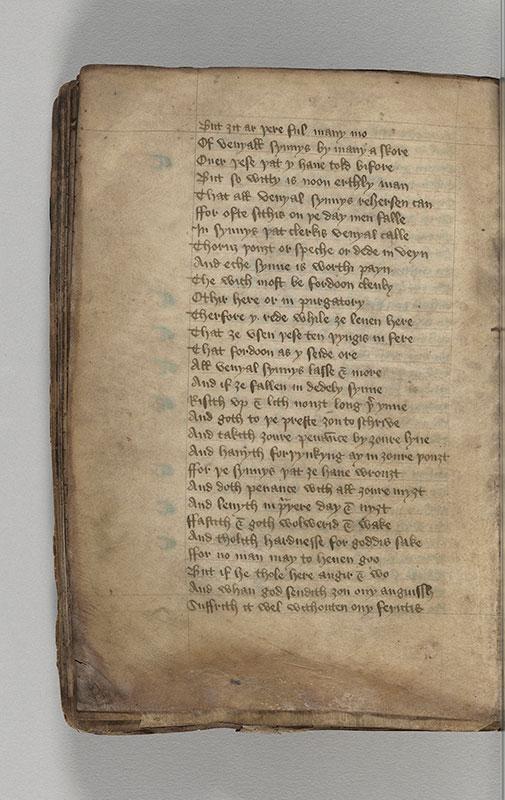 But ȝit ar þere ful many mo
Of venyall synnys by many a skore
Ouer þese þat y haue told bifore
But so witty is noon erthly man
That all venyal synnys rehersen can
ffor ofte sithis on þe day men falle
In synnys þat clerkis venyal calle
Thoruȝ þouȝt or speche or dede in veyn
And eche synne is worthi payn
The wich most be fordoon clenly
Othir here or in purgatory
Therfore y rede while ȝe leuen here
That ȝe vsen þese ten þyngis in fere
That fordoon as y seide ore
All venyal synnys lasse & more
And if ȝe fallen in dedely synne
Risith vp & lith nouȝt long þr ynne
And goth to þe preste ȝou to schriue
And takith ȝoure penance by ȝoure lyue
And hauyth forþynkyng ay in ȝoure þouȝt
ffor þe synnys þat ȝe haue wrouȝt
And doth penance with all ȝoure myȝt
And leuyth in prȝere day & nyȝt
ffastith & goth wolwerid & wake
And tholith hardnesse for goddis sake
ffor no man may to heuen goo
But if he thole here angir & wo
And whan god sendith ȝou ony anguissh
Suffrith it wel withouten ony